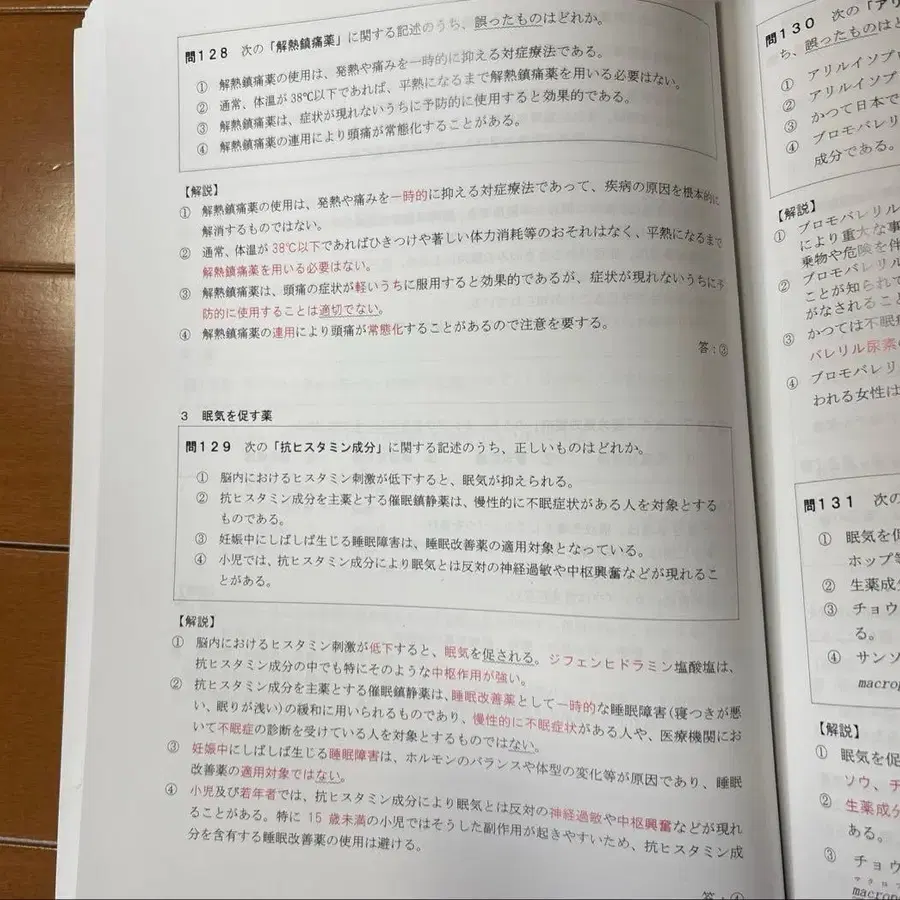 問128 次の「解熱鎮痛薬」に関する記述のうち、誤ったものはどれか。
① 解熱鎮痛薬の使用は、発熱や痛みを一時的に抑える対症療法である。
② 通常、体温が38℃以下であれば、平熱になるまで解熱鎮痛薬を用いる必要はない。
③ 解熱鎮痛薬は、症状が現れないうちに予防的に使用すると効果的である。
④ 解熱鎮痛薬の連用により頭痛が常態化することがある。
【解説】
① 解熱鎮痛薬の使用は、発熱や痛みを一時的に抑える対症療法であって、疾病の原因を根本的に
解消するものではない。
② 通常、体温が38℃以下であればひきつけや著しい体力消耗等のおそれはなく、平熱になるまで
解熱鎮痛薬を用いる必要はない。
③ 解熱鎮痛薬は、頭痛の症状が軽いうちに服用すると効果的であるが、症状が現れないうちに予
防的に使用することは適切でない。
④ 解熱鎮痛薬の連用により頭痛が常態化することがあるので注意を要する。
答：③
3 眠気を促す薬
問129 次の「抗ヒスタミン成分」に関する記述のうち、正しいものはどれか。
① 脳内におけるヒスタミン刺激が低下すると、眠気が抑えられる。
② 抗ヒスタミン成分を主薬とする催眠鎮静薬は、慢性的に不眠症状がある人を対象とする
ものである。
③ 妊娠中にしばしば生じる睡眠障害は、睡眠改善薬の適用対象となっている。
④ 小児では、抗ヒスタミン成分により眠気とは反対の神経過敏や中枢興奮などが現れるこ
とがある。
【解説】
① 脳内におけるヒスタミン刺激が低下すると、眠気を促される。ジフェンヒドラミン塩酸塩は、
抗ヒスタミン成分の中でも特にそのような中枢作用が強い。
② 抗ヒスタミン成分を主薬とする催眠鎮静薬は、睡眠改善薬として一時的な睡眠障害(寝つきが悪
い、眠りが浅い)の緩和に用いられるものであり、慢性的に不眠症状がある人や、医療機関にお
いて不眠症の診断を受けている人を対象とするものではない。
③ 妊娠中にしばしば生じる睡眠障害は、ホルモンのバランスや体型の変化等が原因であり、睡眠
改善薬の適用対象ではない。
④ 小児及び若年者では、抗ヒスタミン成分により眠気とは反対の神経過敏や中枢興奮などが現れ
ることがある。特に15歳未満の小児ではそうした副作用が起きやすいため、抗ヒスタミン成
分を含有する睡眠改善薬の使用は避ける。
答：④
問130 次の「アリ
ち、誤ったものは
① アリルイソプロ
② アリルイソプ
③ かつて日本で
④ ブロモバレリ
成分である。
【解説】
① ブロモバレリル
により重大な事
乗物や危険を伴
② ブロモバレリル
ことが知られて
がなされること
③ かつては不眠
バレリル尿素
④ ブロモバレリ
われる女性は
問131 次の
① 眠気を促
ホップ等
② 生薬成分
③ チョウ
る。
④ サンソ
macrop
【解説】
① 眠気を促
ソウ、チ
② 生薬成分
ある。
③ チョウ
macrop